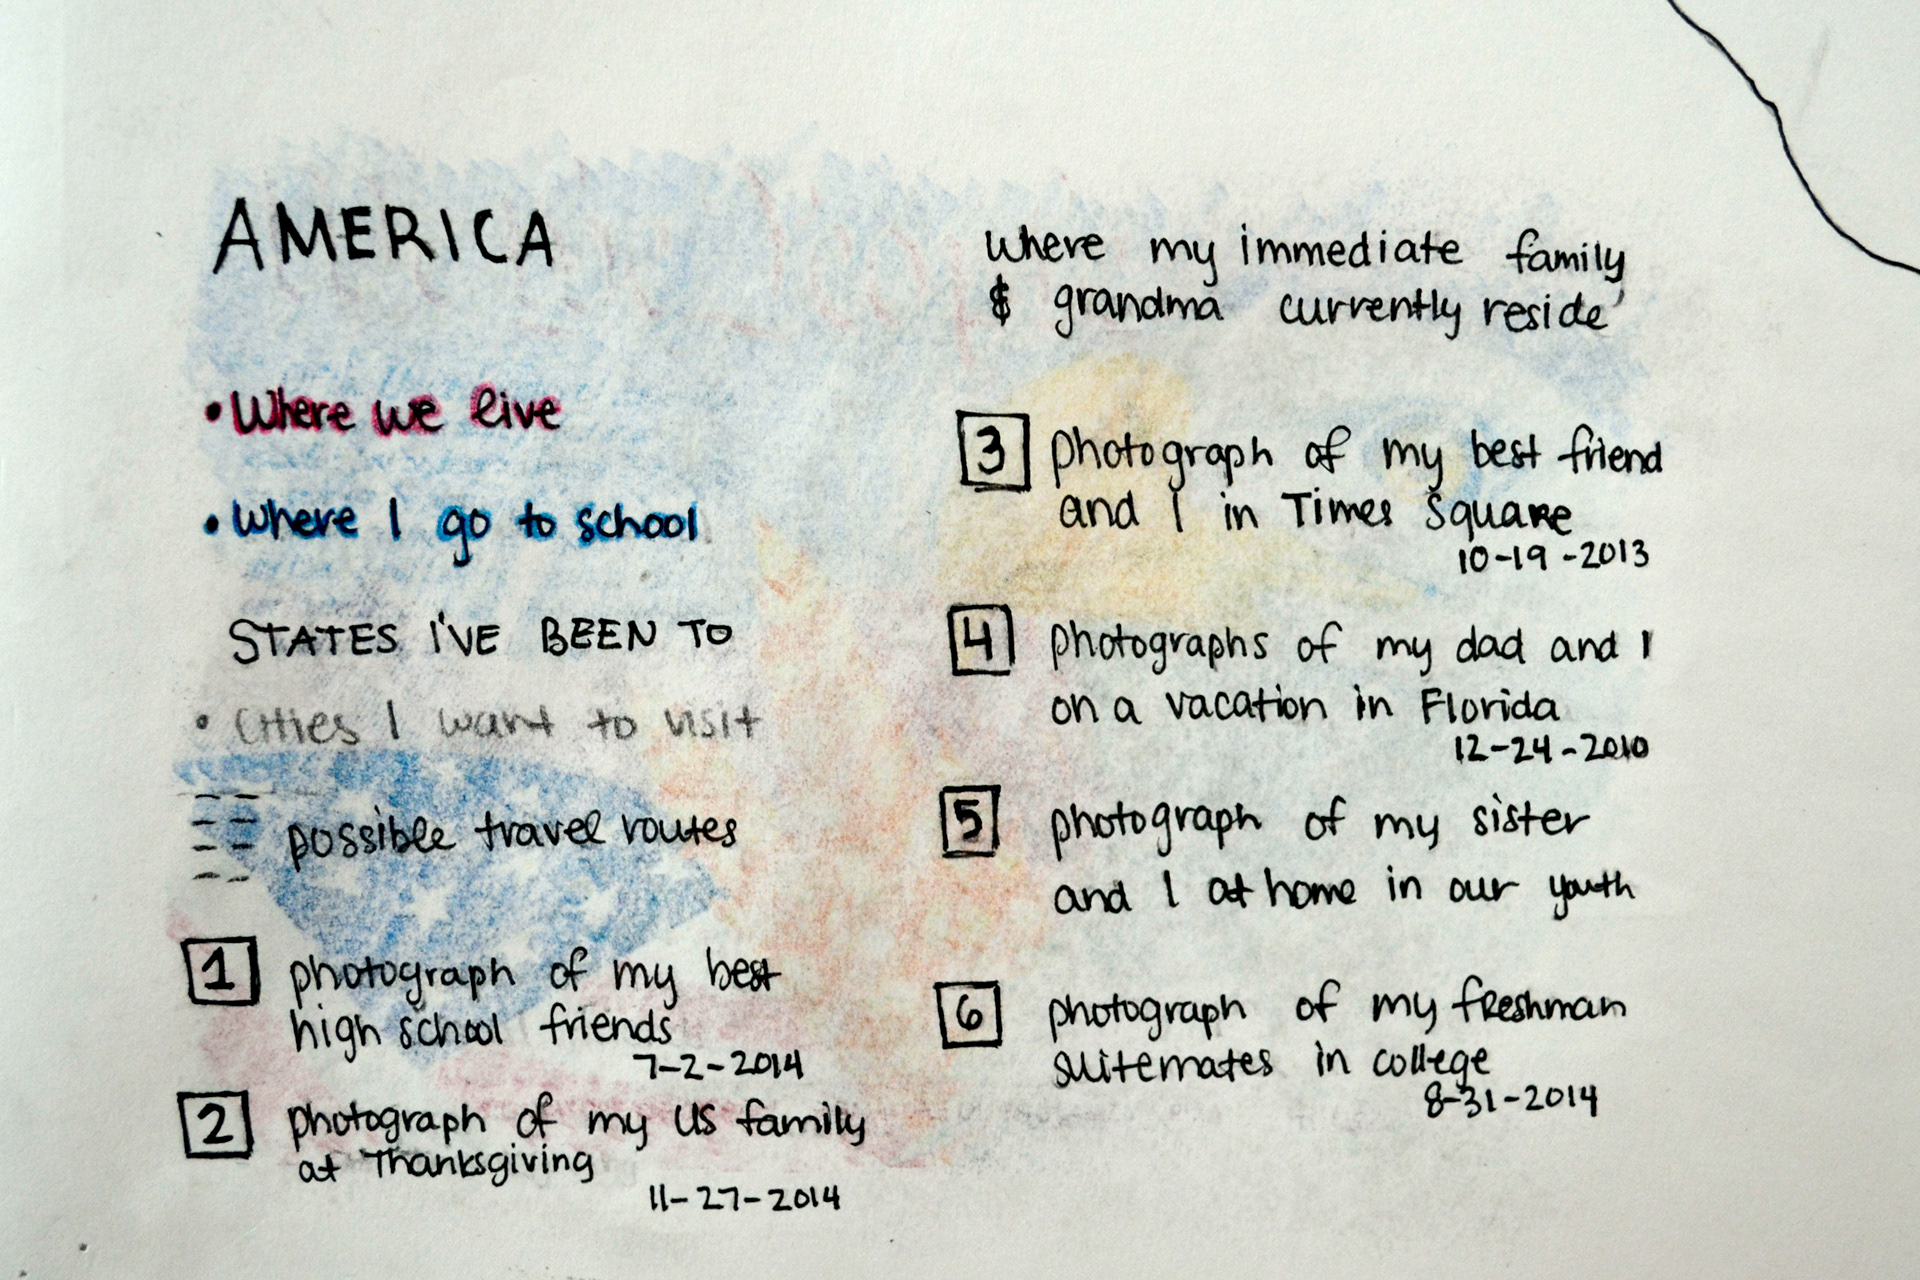 AMERICA
• Where we live
• Where I go to school
STATES I'VE BEEN TO
• Cities I want to visit
possible travel routes
1 photograph of my best
high school friends
7-2-2014
2 photograph of my US family
at Thanksgiving
11-27-2014
Where my immediate family
$ grandma currently reside
3 photograph of my best friend
and I in Times Square
10-19-2013
4 photographs of my dad and I
on a vacation in Florida
12-24-2010
5 photograph of my sister
and I at home in our youth
6 photograph of my freshman
suitemates in college
8-31-2014